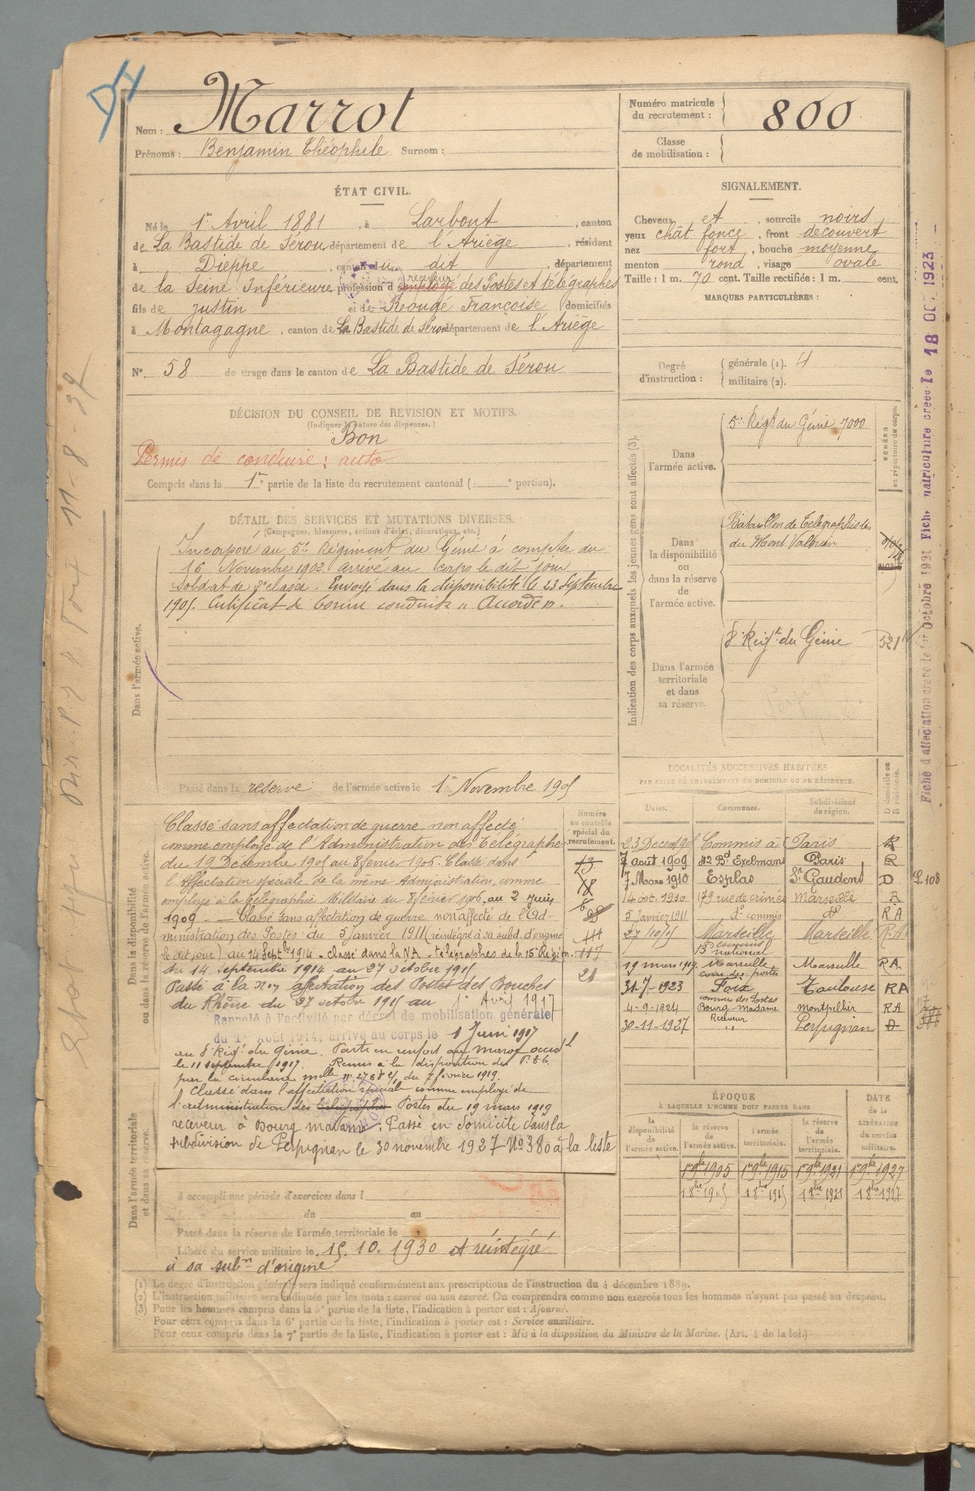 Nom : Marrot
Prénoms : Benjamin Théophile Surnom :
Numéro matricule du recrutement : 800
Classe de mobilisation :
ÉTAT CIVIL.
Né le 1er Avril 1881, à Larbont, canton
de La Bastide de Sérou, département de l'Ariège, résidant
à Dieppe, canton du dit, département
de la Seine Inférieure, profession d'employé receveur des Postes et télégraphes
fils de Justin et de Rougé Françoise domiciliés
à Montagagne, canton de La Bastide de Sérou département de l'Ariège
N° 58 du tirage dans le canton de La Bastide de Sérou
SIGNALEMENT.
Cheveux et, sourcils noirs
yeux chât foncé, front découvert
nez fort, bouche moyenne
menton rond, visage ovale
Taille : 1 m. 70 cent. Taille rectifiée : 1 m. cent.
MARQUES PARTICULIÈRES :
Degré d'instruction : générale (1). 4
militaire (2).
DÉCISION DU CONSEIL DE REVISION ET MOTIFS.
(Indiquer la nature des dispenses.)
Bon
Permis de conduire : auto
Compris dans la 1re partie de la liste du recrutement cantonal ( e portion).
DÉTAIL DES SERVICES ET MUTATIONS DIVERSES.
(Campagnes, blessures, actions d'éclat, décorations, etc.)
Dans l'armée active.
Incorporé au 5e Régiment du Génie à compter du
16 Novembre 1902 arrivé au corps le dit jour
Soldat de 2e classe. Envoyé dans la disponibilité le 23 Septembre
1905. Certificat de bonne conduite "Accordé".
Passé dans la réserve de l'armée active le 1er Novembre 1905
Indication des corps auxquels les jeunes gens sont affectés (3).
Dans l'armée active.
5e Régt du Génie 7000
Dans la disponibilité ou dans la réserve de l'armée active.
Bataillon de Télégraphistes
du Mont Valérien
Dans l'armée territoriale et dans sa réserve.
8e Régt du Génie 521
Numéro au contrôle spécial du recrutement.
Dans la disponibilité ou dans la réserve de l'armée active.
Classé sans affectation de guerre non affecté
comme employé de l'Administration des Télégraphes
du 19 Décembre 1905 au 8 février 1906. Classé dans
l'affectation spéciale de la même Administration, comme
employé à la télégraphie Militaire du 8 février 1906, au 2 juin
1909. — Classé sans affectation de guerre non affecté de l'Ad-
ministration des Postes du 5 janvier 1911 (réintégré à sa subd. d'origine
le dit jour) au 14 Septbre 1914 - classé dans la NA - Télégraphes de la 15e Région
du 14 septembre 1914 au 27 octobre 1915
Passé à la non affectation des Postes des Bouches
du Rhône du 27 octobre 1915 au 1er Avril 1917
Rappelé à l'activité par décret de mobilisation générale
du 1er août 1914, arrivé au corps le 1 Juin 1917
au 8e Régt du Génie. Parti en renfort au maroc occidl
le 11 septembre 1917. Remis à la disposition des
par la circulaire du 7 février 1919.
Classé dans l'affectation spéciale comme employé de
l'administration des Télégraphes Postes du 19 mars 1919
receveur à Bourg madame. Passé en domicile dans la
subdivision de Perpignan le 30 novembre 1927 N° 380 à la liste
Dans l'armée territoriale et dans sa réserve.
à accompli une période d'exercices dans l
du au
Passé dans la réserve de l'armée territoriale le
Libéré du service militaire le 15.10.1930 et réintégré
à sa subon d'origine
LOCALITÉS SUCCESSIVES HABITÉES
PAR SUITE DE CHANGEMENTS DE DOMICILE OU DE RÉSIDENCE.
Dates. Communes. Subdivisions de région. D domicile ou R résidence.
23 Décem 1905 Commis à Paris R
7 août 1909 112 Bd Exelmans Paris R
7 Mars 1910 Esplas St Gaudens D
14 oct. 1910 179 rue de crimée Marseille R
5 janvier 1911 do commis do RA
Marseille Marseille RA
19 mars 1919 Marseille Marseille RA
31-7-1923 Foix Toulouse RA
4-9-1924 Bourg-Madame Montpellier RA
30-11-1927 Receveur " Perpignan D
ÉPOQUE
À LAQUELLE L'HOMME DOIT PASSER DANS
la disponibilité de l'armée active. la réserve de l'armée active. l'armée territoriale. la réserve de l'armée territoriale.
DATE de la LIBÉRATION du service militaire.
1 9bre 1905 1 9bre 1915 1 9bre 1921 1 9bre 1927
(1) Le degré d'instruction générale sera indiqué conformément aux prescriptions de l'instruction du 4 décembre 1889.
(2) L'instruction militaire sera indiquée par les mots : exercé ou non exercé. On comprendra comme non exercés tous les hommes n'ayant pas passé au drapeau.
(3) Pour les hommes compris dans la 5e partie de la liste, l'indication à porter est : Ajourné.
Pour ceux compris dans la 6e partie de la liste, l'indication à porter est : Service auxiliaire.
Pour ceux compris dans la 7e partie de la liste, l'indication à porter est : Mis à la disposition du Ministre de la Marine. (Art. 4 de la loi.)